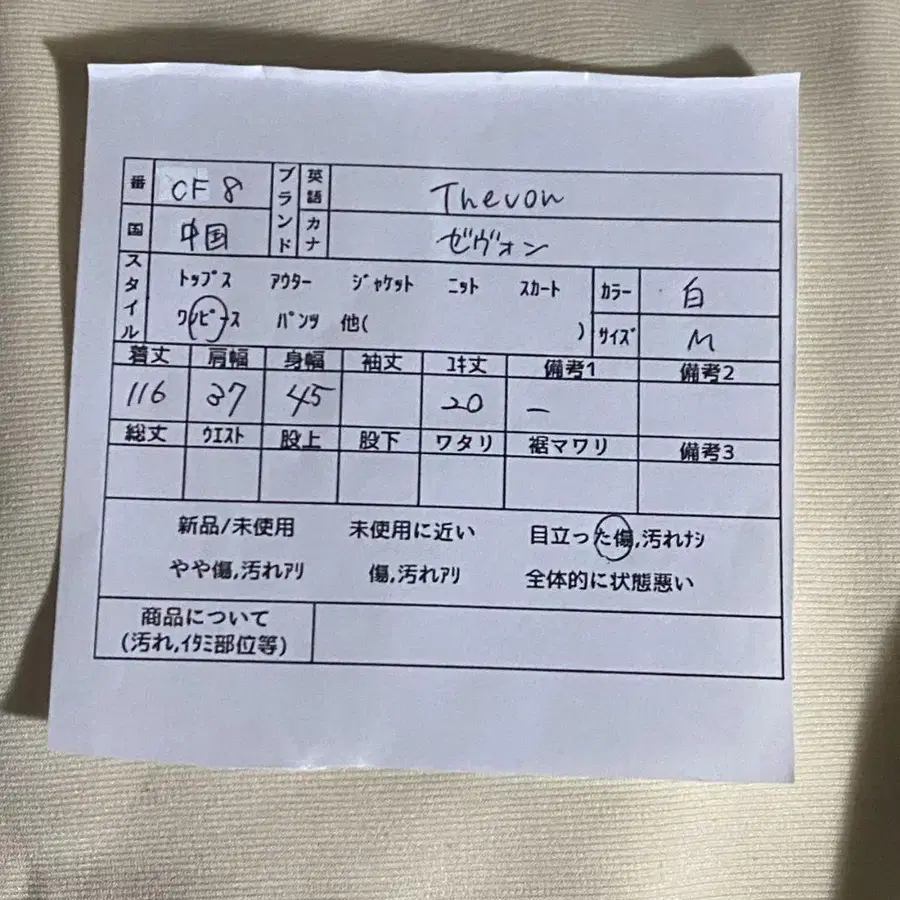 番 CF 8 ブランド 英語 Thevon
国 中国 カナ ゼヴォン
スタイル トップス アウター ジャケット ニット スカート カラー 白
ワンピース パンツ 他( ) サイズ M
着丈 肩幅 身幅 袖丈 ユキ丈 備考1 備考2
116 37 45 20 —
総丈 ウエスト 股上 股下 ワタリ 裾マワリ 備考3
新品/未使用 未使用に近い 目立った傷,汚れナシ
やや傷,汚れアリ 傷,汚れアリ 全体的に状態悪い
商品について
(汚れ,イタミ部位等)